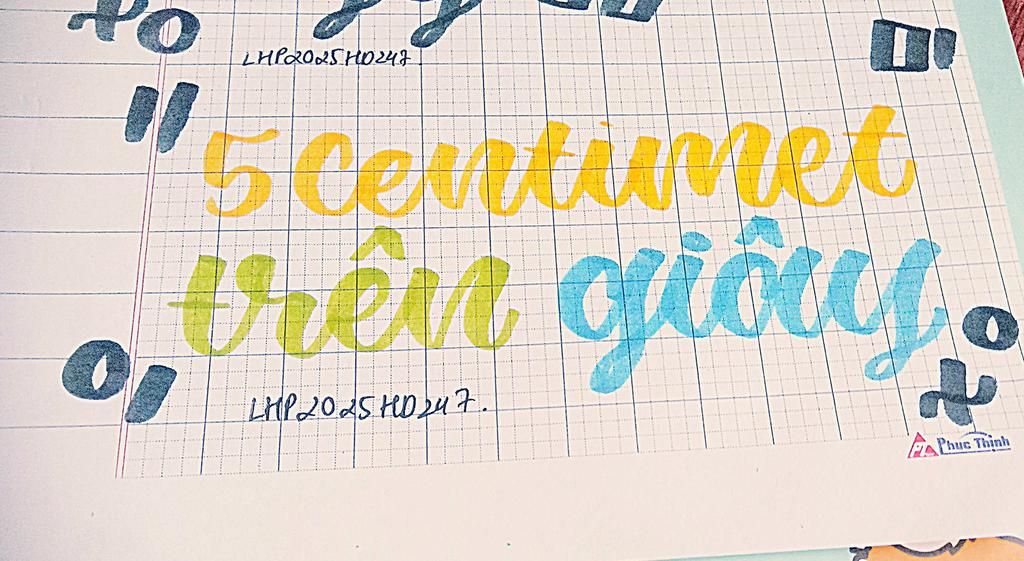 LHP2025HD247.
5 centimet
trên giây
LHP2025HD247.
Phuc Thinh